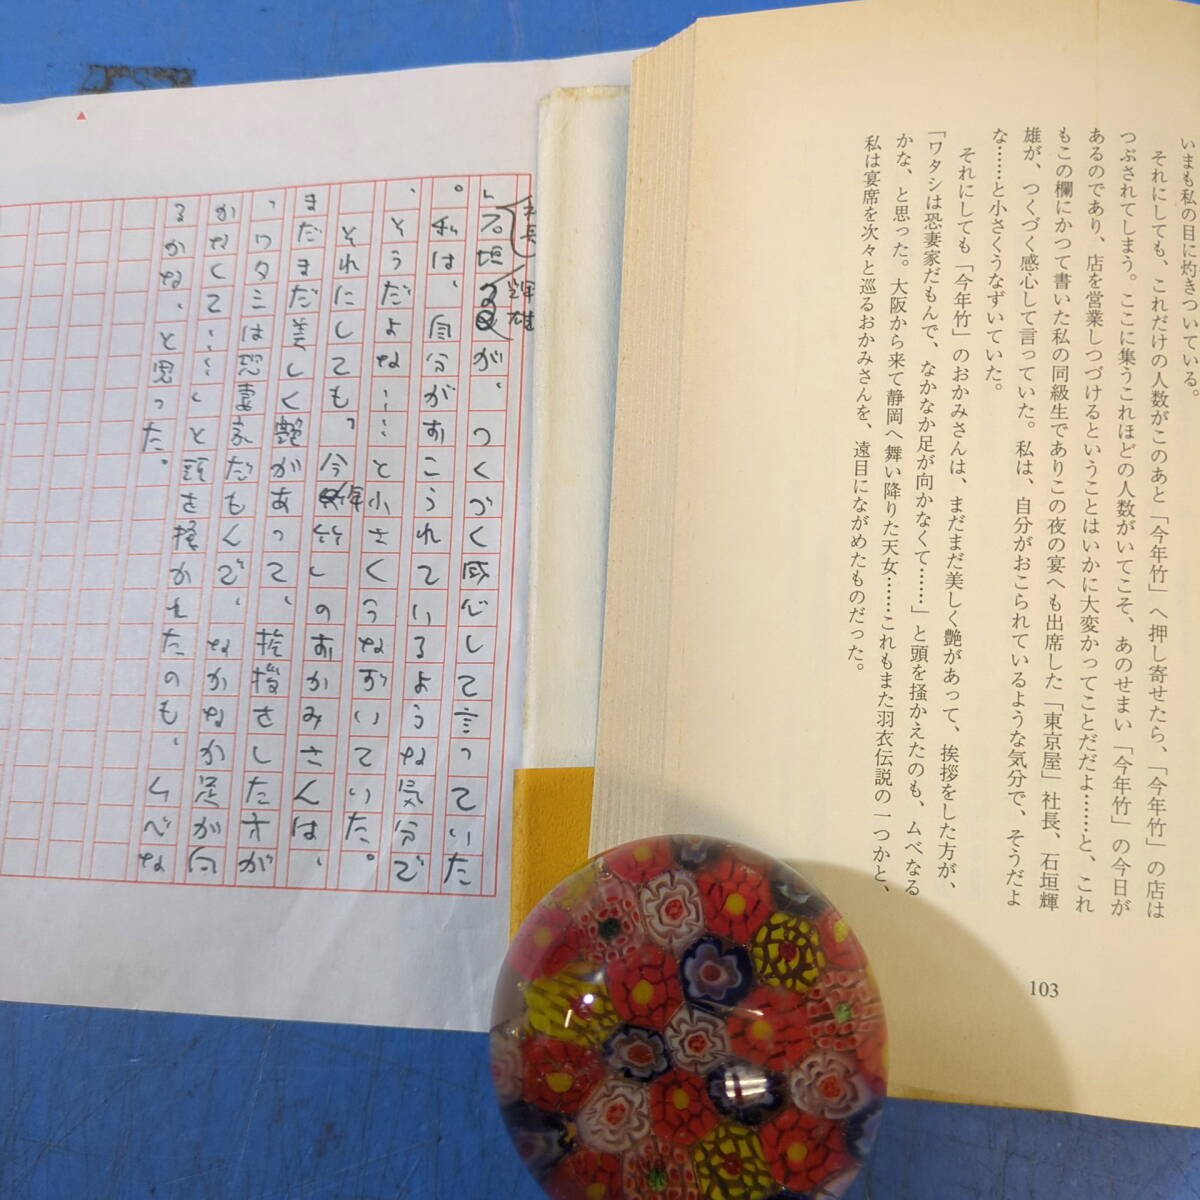 いまも私の目に灼きついている。
それにしても、これだけの人数がこのあと「今年竹」へ押し寄せたら、「今年竹」の店は
つぶされてしまう。ここに集うこれほどの人数がいてこそ、あのせまい「今年竹」の今日が
あるのであり、店を営業しつづけるということはいかに大変かってことだだよ……と、これ
もこの欄にかつて書いた私の同級生でありこの夜の宴へも出席した「東京屋」社長、石垣輝
雄が、つくづく感心して言っていた。私は、自分がおこられているような気分で、そうだよ
な……と小さくうなずいていた。
それにしても「今年竹」のおかみさんは、まだまだ美しく艶があって、挨拶をした方が、
「ワタシは恐妻家だもんで、なかなか足が向かなくて……」と頭を掻かえたのも、ムベなる
かな、と思った。大阪から来て静岡へ舞い降りた天女……これもまた羽衣伝説の一つかと、
私は宴席を次々と巡るおかみさんを、遠目にながめたものだった。
103
社長
」石垣
輝雄
が、つくづく感心して言っていた
。私は、自分がおこられているような気分で
、そうだよな……と小さくうなずいていた。
それにしても「今年竹」のおかみさんは、
まだまだ美しく艶があって、挨拶をした方が
「ワタシは恐妻家だもんで、なかなか足が向
かなくて……」と頭を掻かえたのも、ムベな
るかな、と思った。